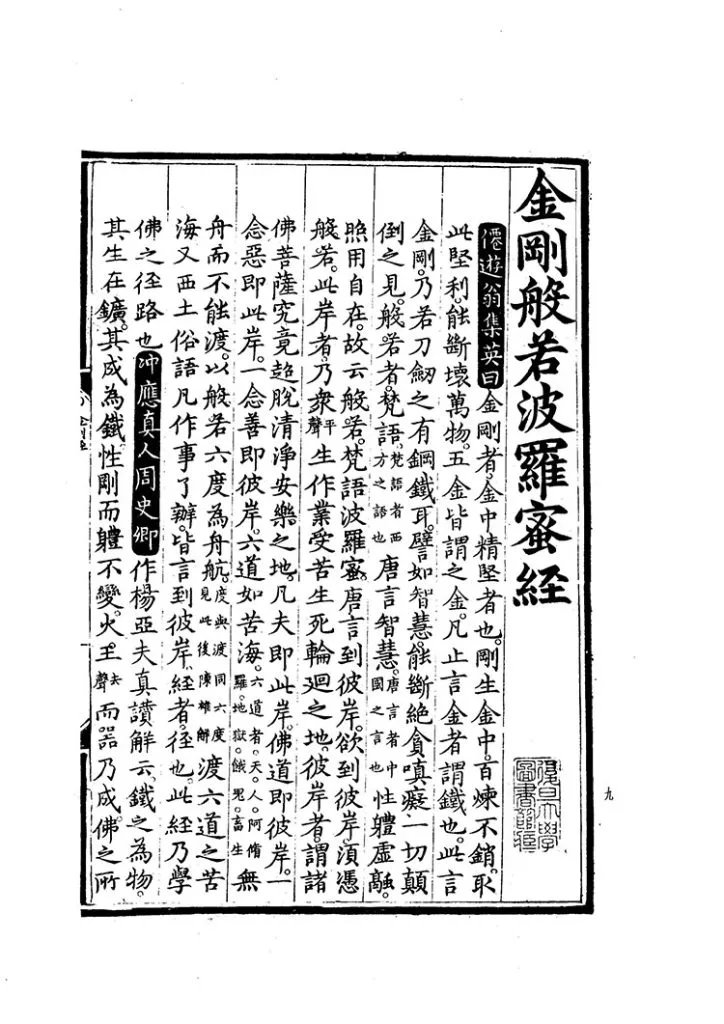 金剛般若波羅蜜經
僊遊翁集英曰金剛者金中精堅者也。剛生金中。百煉不銷。取
此堅利。能斷壞萬物。五金皆謂之金。凡止言金者謂鐵也。此言
金剛。乃若刀劒之有鋼鐵耳。譬如智慧。能斷絕貪嗔癡一切顛
倒之見。般若者。梵語梵語者西方之語也唐言智慧。唐言者中國之言也性軆虛融。
照用自在。故云般若。梵語波羅蜜。唐言到彼岸。欲到彼岸。須憑
般若。此岸者。乃衆平聲生作業受苦生死輪廻之地。彼岸者。謂諸
佛菩薩究竟超脫清淨安樂之地。凡夫即此岸。佛道即彼岸。一
念惡即此岸。一念善即彼岸。六道如苦海。六道者。天。人。阿脩羅。地獄。餓鬼。畜生無
舟而不能渡。以般若六度為舟航。度與渡同六度見此後陳雄解渡六道之苦
海又西土俗語凡作事了辦。皆言到彼岸。經者。徑也。此經乃學
佛之徑路也冲應真人周史卿作楊亞夫真讚解云。鐵之為物。
其生在鑛。其成為鐵。性剛而軆不變。火王去聲而器乃成。佛之所
復旦大學
圖書館藏
九